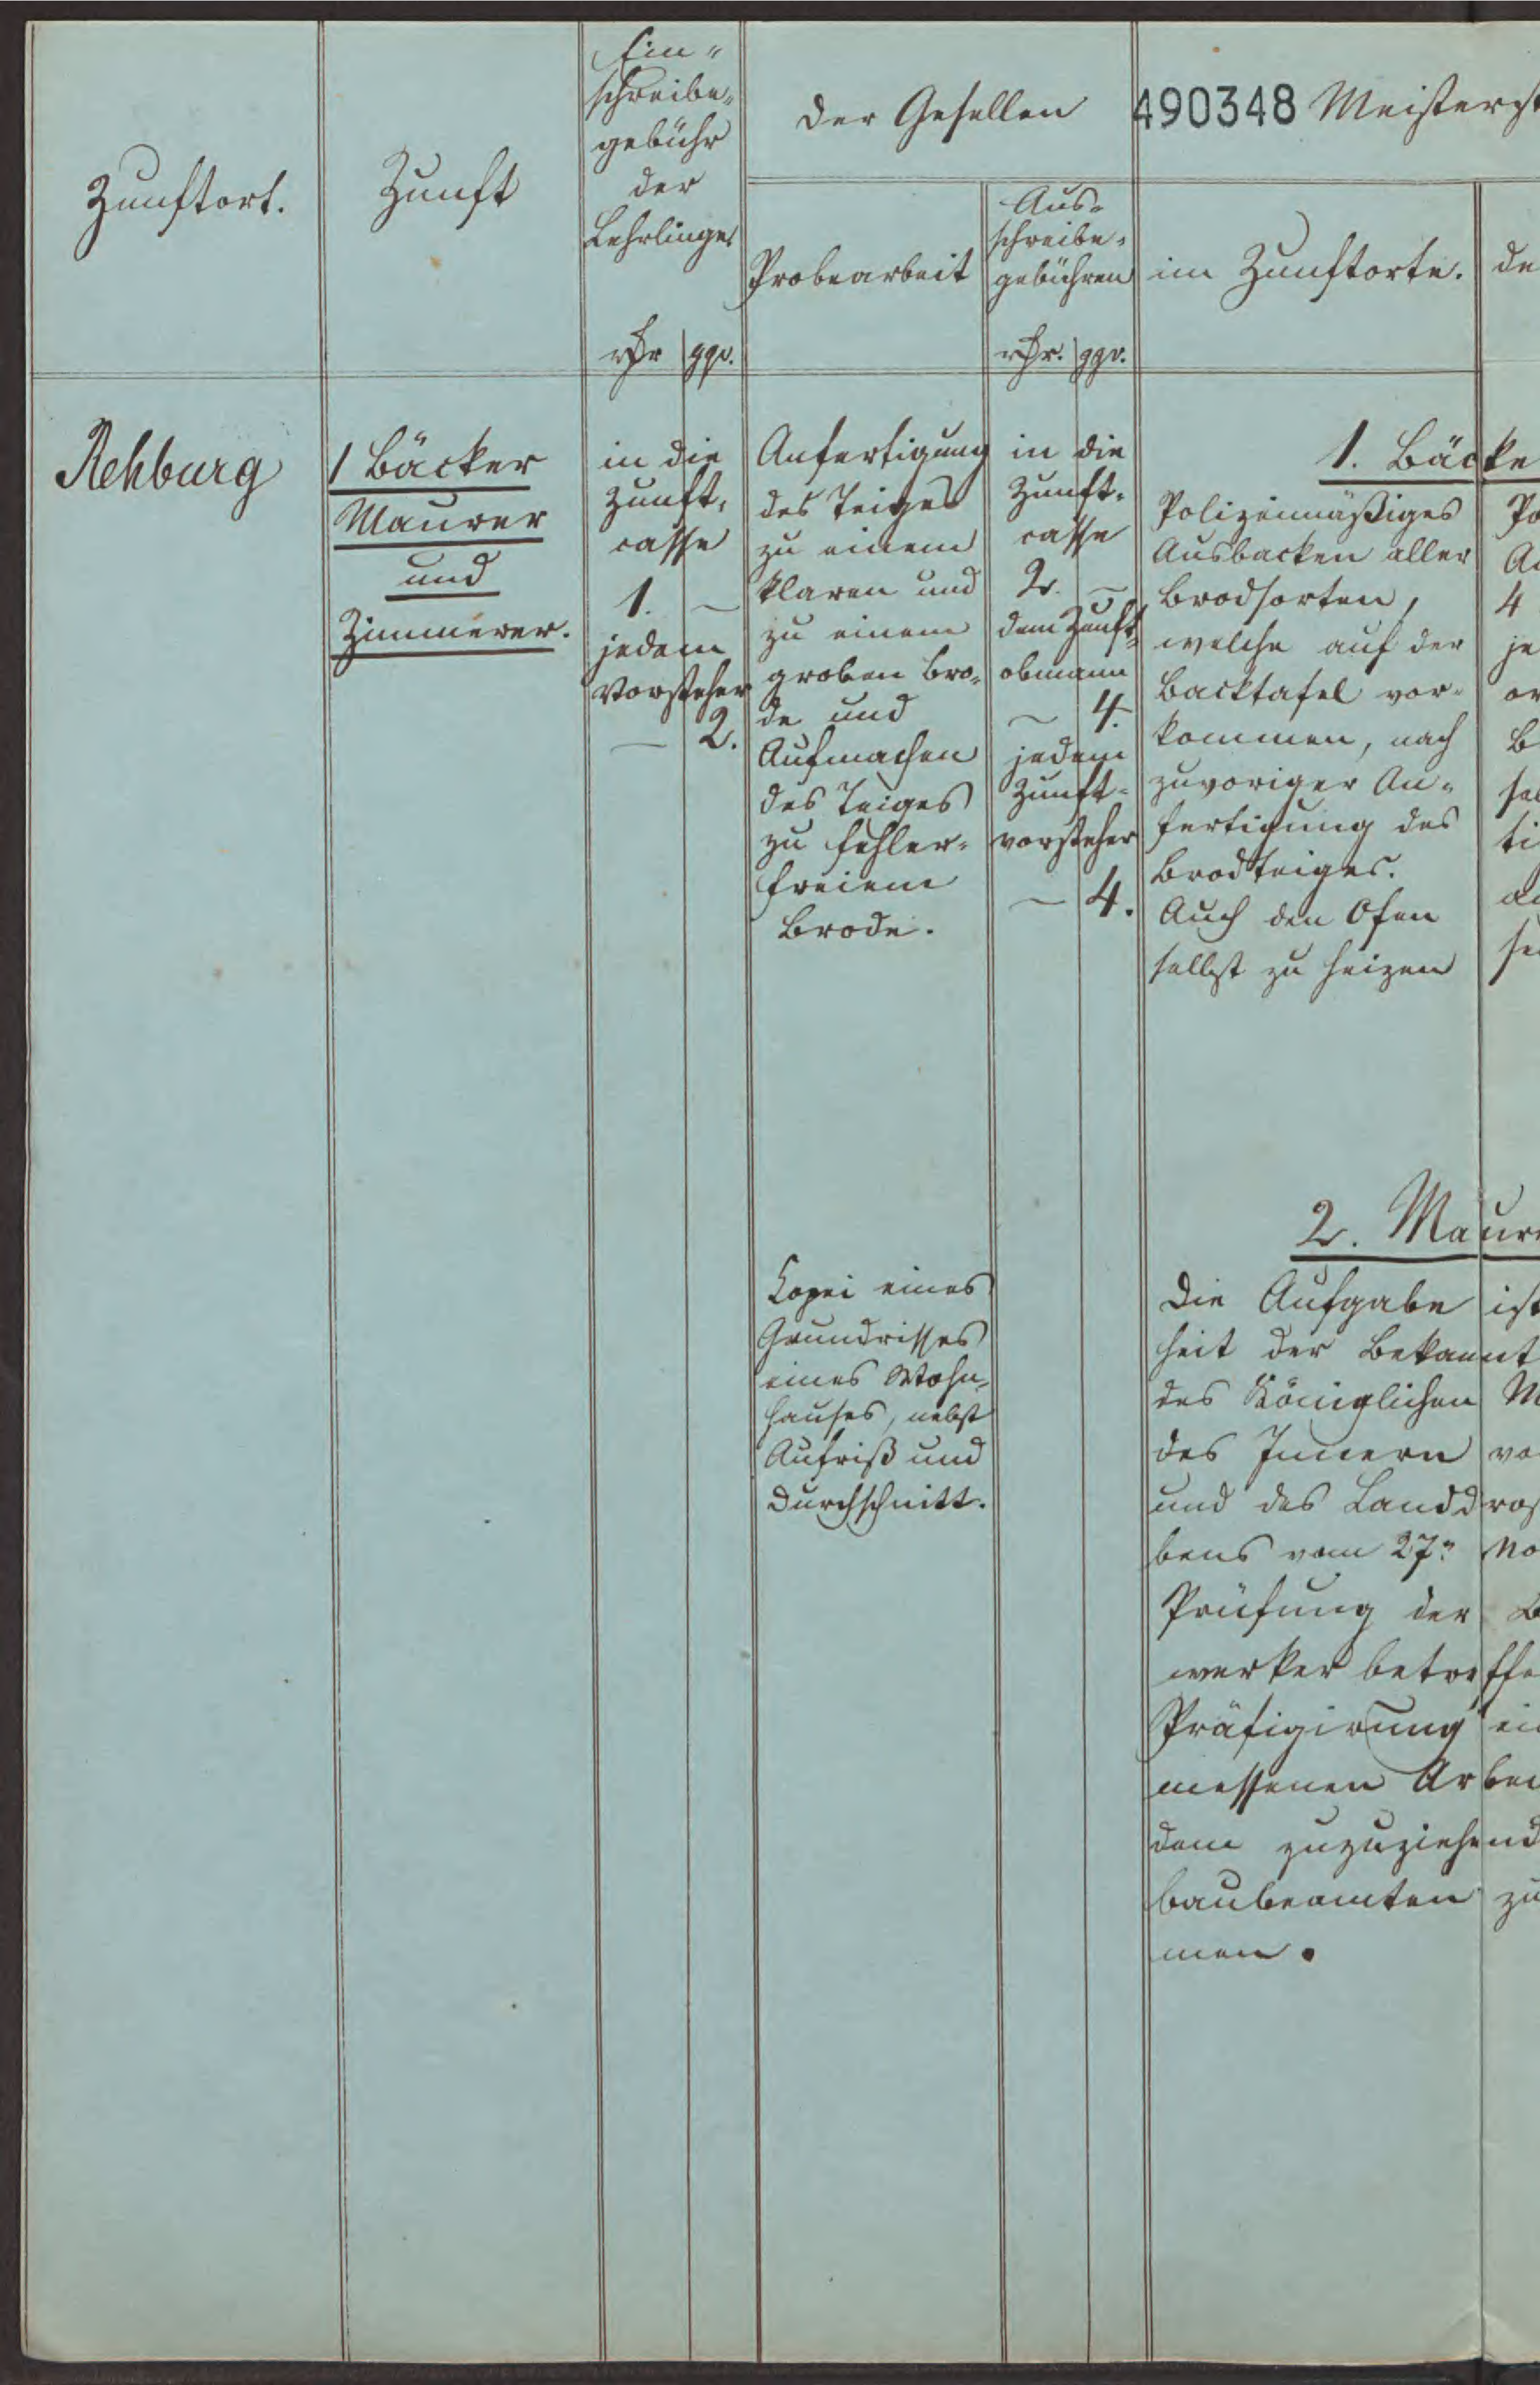 Zunftort.
Zunft
Ein-
schreibe-
gebühr
der
Lehrlinge
rthr ggr.
der Gesellen
Probearbeit
Aus-
schreibe-
gebühren
rthr. ggr.
490348
Meisterst
im Zunftorte.
de
Rehburg
1 Bäcker
Maurer
und
Zimmerer.
in die
Zunft-
casse
1. –
jedem
Vorsteher
– 2.
Anfertigung
des Teiges
zu einem
klaren und
zu einem
groben Bro-
de und
Aufmachen
des Teiges
zu fehler-
freiem
Brode.
in die
Zunft-
casse
2. –
dem Zunft-
obmann
– 4.
jedem
Zunft-
vorsteher
– 4.
1. Bäcke
Polizeimäßiges
Ausbacken aller
Brodsorten,
welche auf der
Backtafel vor-
kommen, nach
zuvoriger An-
fertigung des
Brodteiges.
Auch den Ofen
selbst zu heizen
Po
A
4
je
or
B
sel
ti
au
se
Kopei eines
Grundrisses
eines Wohn-
hauses, nebst
Aufriß und
Durchschnitt.
2. Maur
Die Aufgabe ist
heit der Bekannt
des Königlichen M
des Innern vo
und des Landdros
bens vom 27n No
Prüfung der B
werker betreffe
Präfigirung ei
messenen Arbei
dem zuzuziehend
baubeamten zu
men.